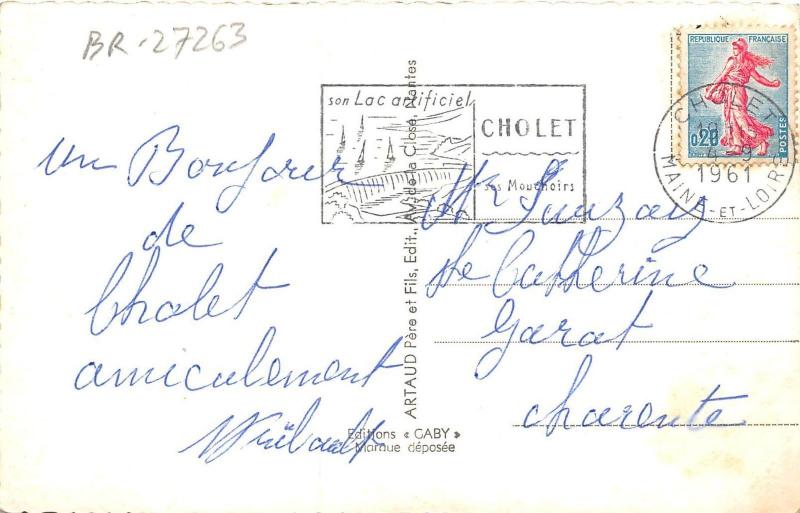 BR-27263
son Lac artificiel
CHOLET
ses Mouchoirs
REPUBLIQUE FRANÇAISE
0,20
POSTES
CHOLET
1961
MAINE-ET-LOIRE
un Bonjour
de
Cholet
amiculement
Mr
Ste Catherine
Garat
Charente
ARTAUD Père et Fils, Edit., Av. de la Close, Nantes
Editions « GABY »
Marque déposée